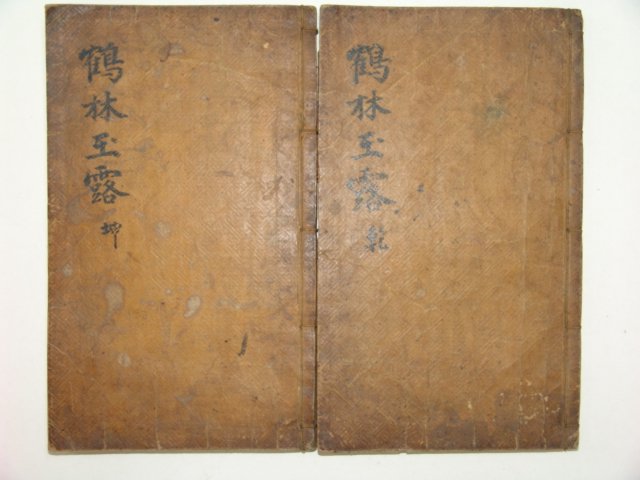 鶴林玉露 乾
鶴林玉露 坤